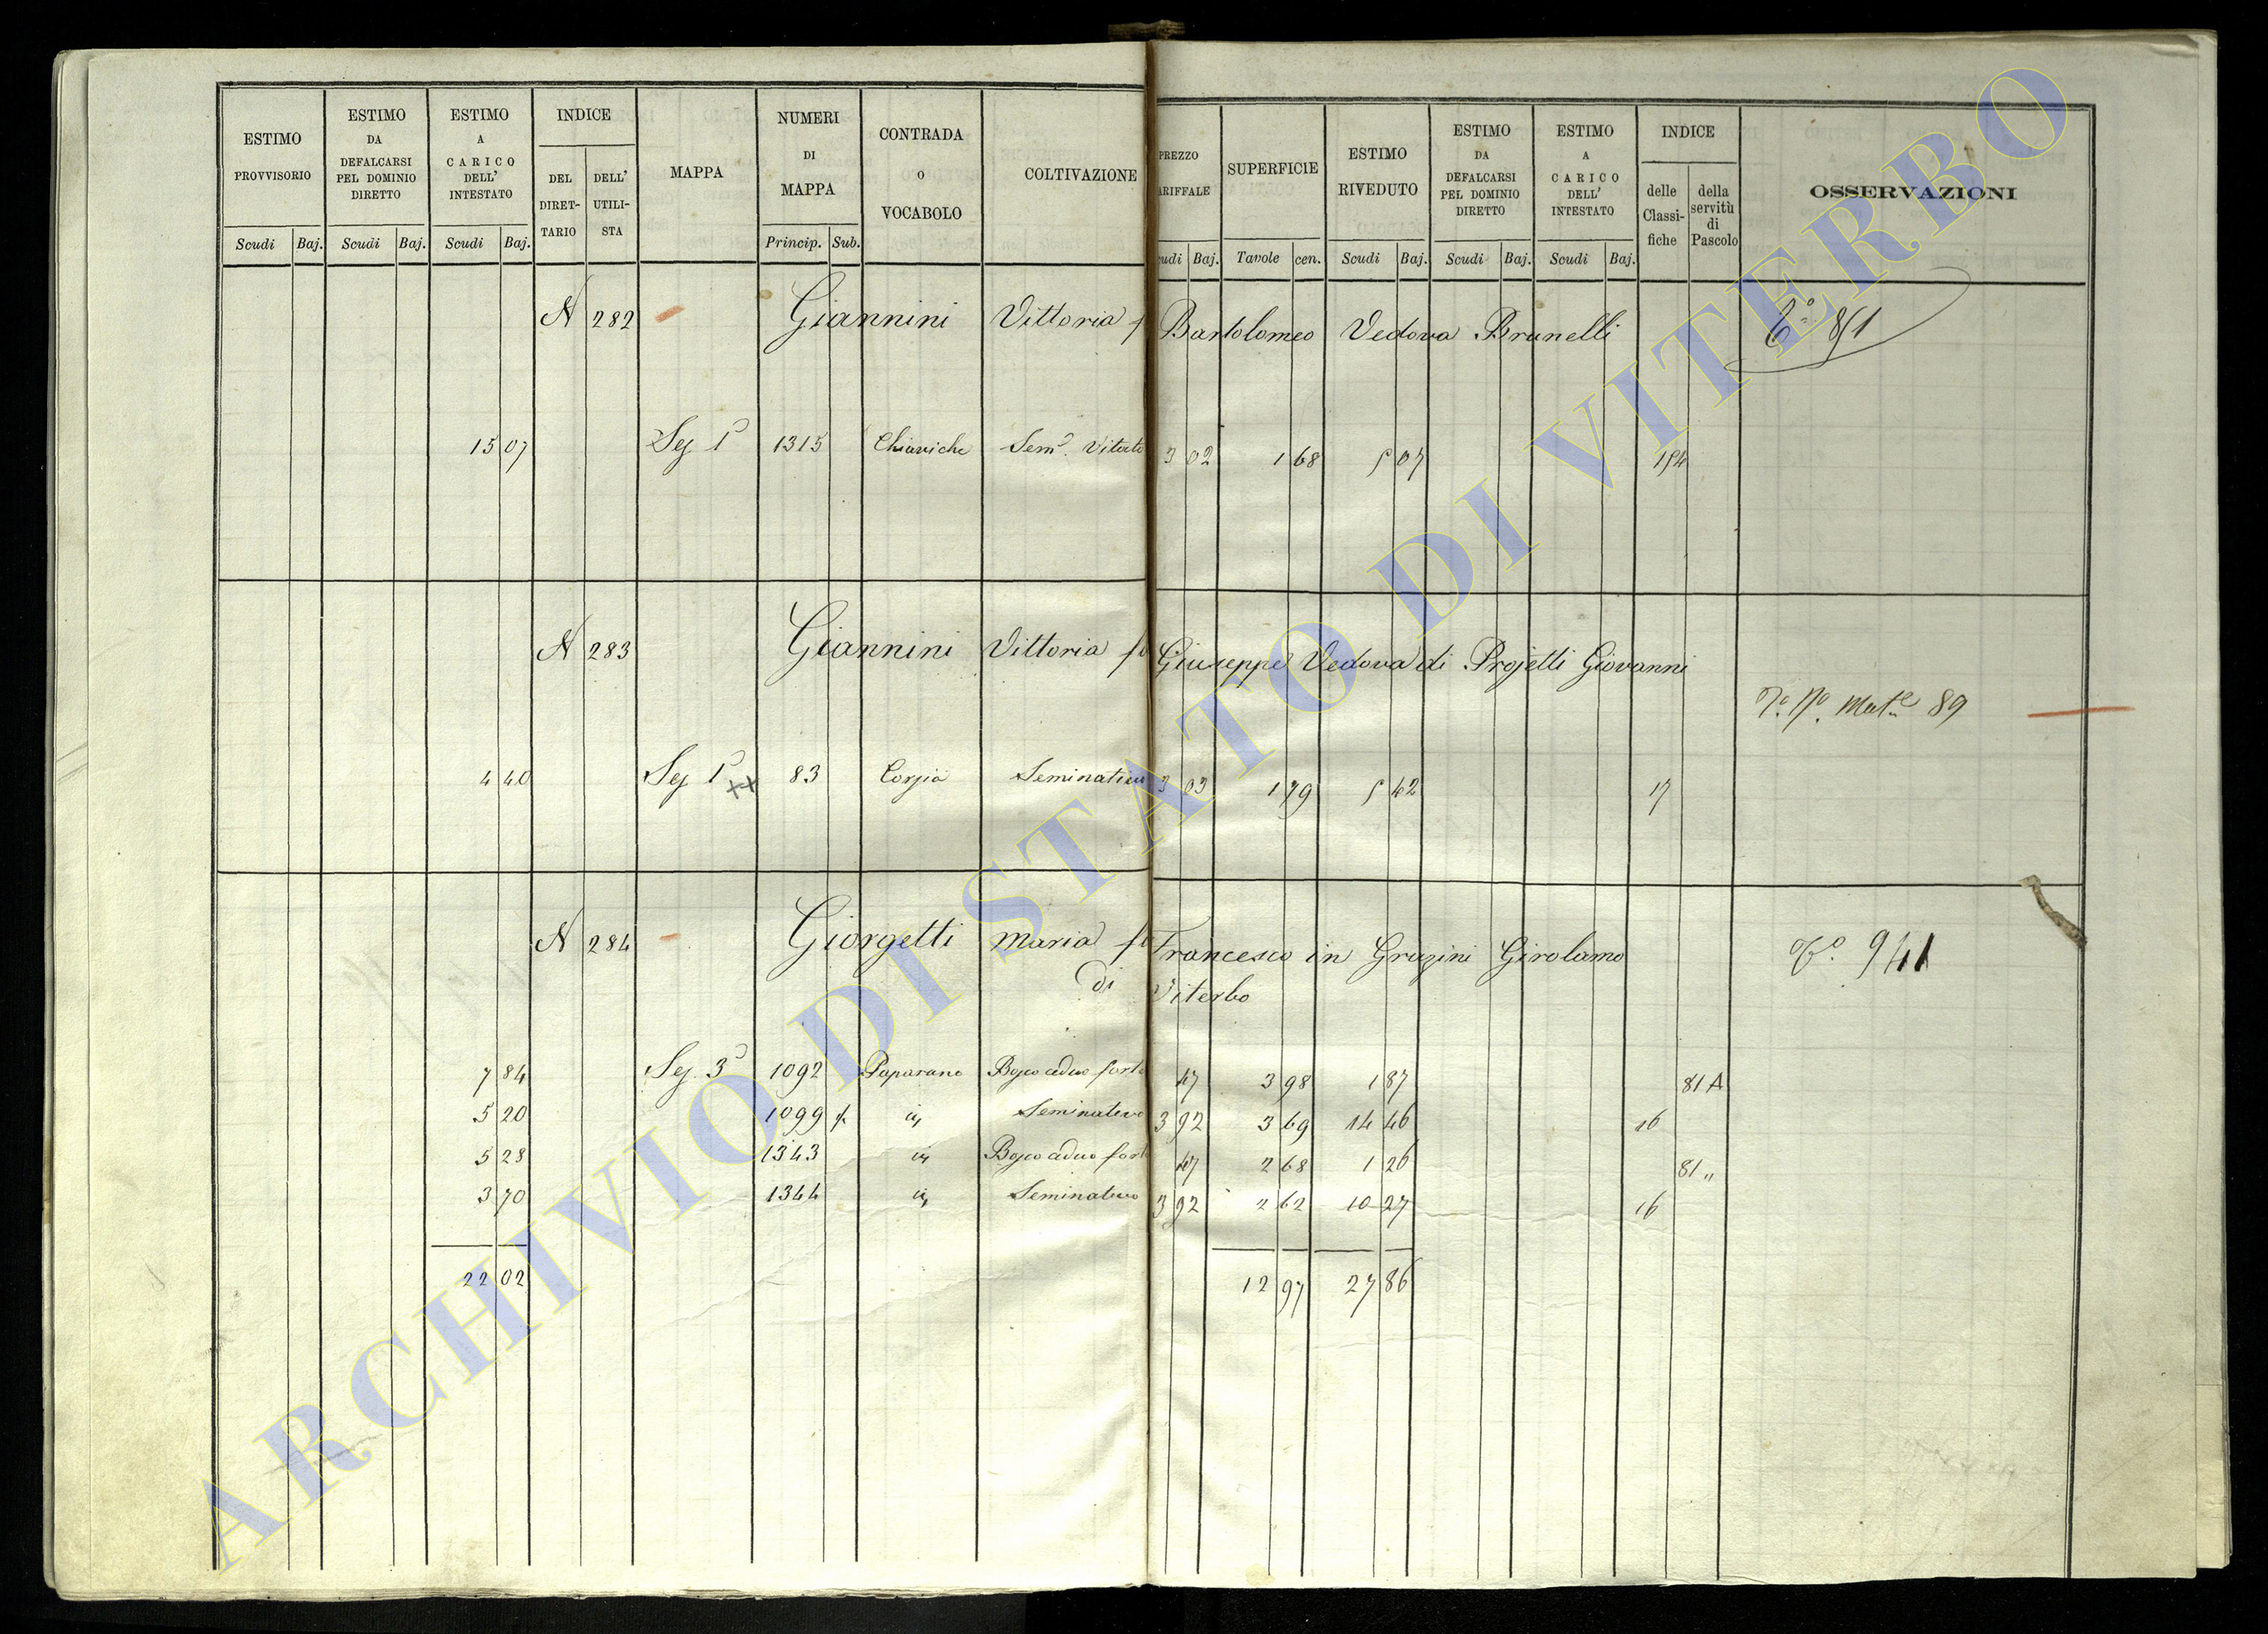 ESTIMO PROVVISORIO ESTIMO DA DEFALCARSI PEL DOMINIO DIRETTO ESTIMO A CARICO DELL' INTESTATO INDICE DEL DIRET-TARIO DELL' UTILI-STA MAPPA NUMERI DI MAPPA CONTRADA O VOCABOLO COLTIVAZIONE PREZZO ARIFFALE SUPERFICIE ESTIMO RIVEDUTO ESTIMO DA DEFALCARSI PEL DOMINIO DIRETTO ESTIMO A CARICO DELL' INTESTATO INDICE delle Classi-fiche della servitù di Pascolo OSSERVAZIONI
Scudi Baj. Scudi Baj. Scudi Baj. Princip. Sub. udi Baj. Tavole cen. Scudi Baj. Scudi Baj. Scudi Baj.
N 282 Giannini Vittoria f Bartolomeo Vedova Brunelli 851
15 07 Sez 1ª 1315 Chiaviche Semº. Vitato 3 02 1 68 5 07 154
N 283 Giannini Vittoria fu Giuseppe Vedova di Projetti Giovanni
Mutе 89
4 40 Sez 1ª ++ 83 Corzia Seminativo 3 03 1 79 5 42 17
N 284 Giorgetti Maria fu Francesco in Grazini Girolamo 941
di Viterbo
7 84 Sez. 3ª 1092 Paparano Bosco ceduo forte 47 3 98 1 87 81 A
5 20 1099 id Seminativo 3 92 3 69 14 46 16
5 28 1343 id Bosco ceduo forte 47 2 68 1 26 81 "
3 70 1344 id Seminativo 3 92 2 62 10 27 16
22 02 12 97 27 86
ARCHIVIO DI STATO DI VITERBO